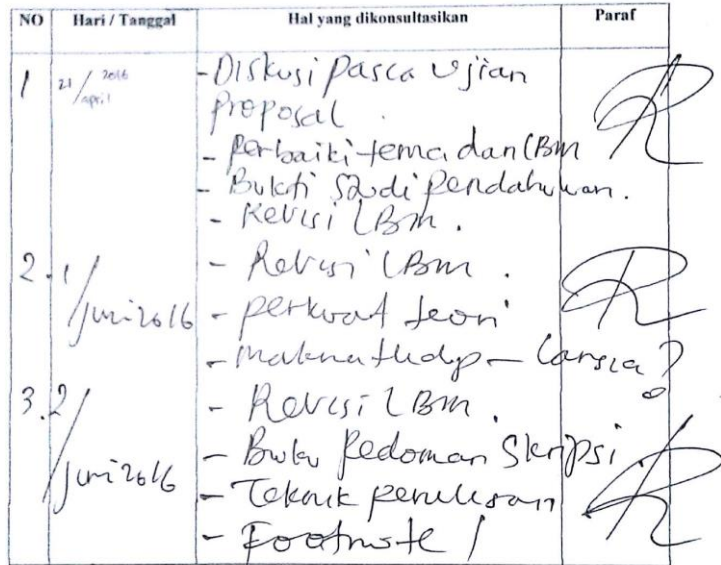 NO Hari / Tanggal Hal yang dikonsultasikan Paraf
1 21/april 2016 - Diskusi pasca ujian
proposal.
- perbaiki tema dan LBM
- Bukti Studi pendahuluan.
- Revisi LBM.
2. 1/juni 2016 - Revisi LBM.
- perkuat teori
- makna hidup - Lansia?
3. 2/juni 2016 - Revisi LBM.
- Buku pedoman Skripsi
- Teknik penulisan
- Footnote /